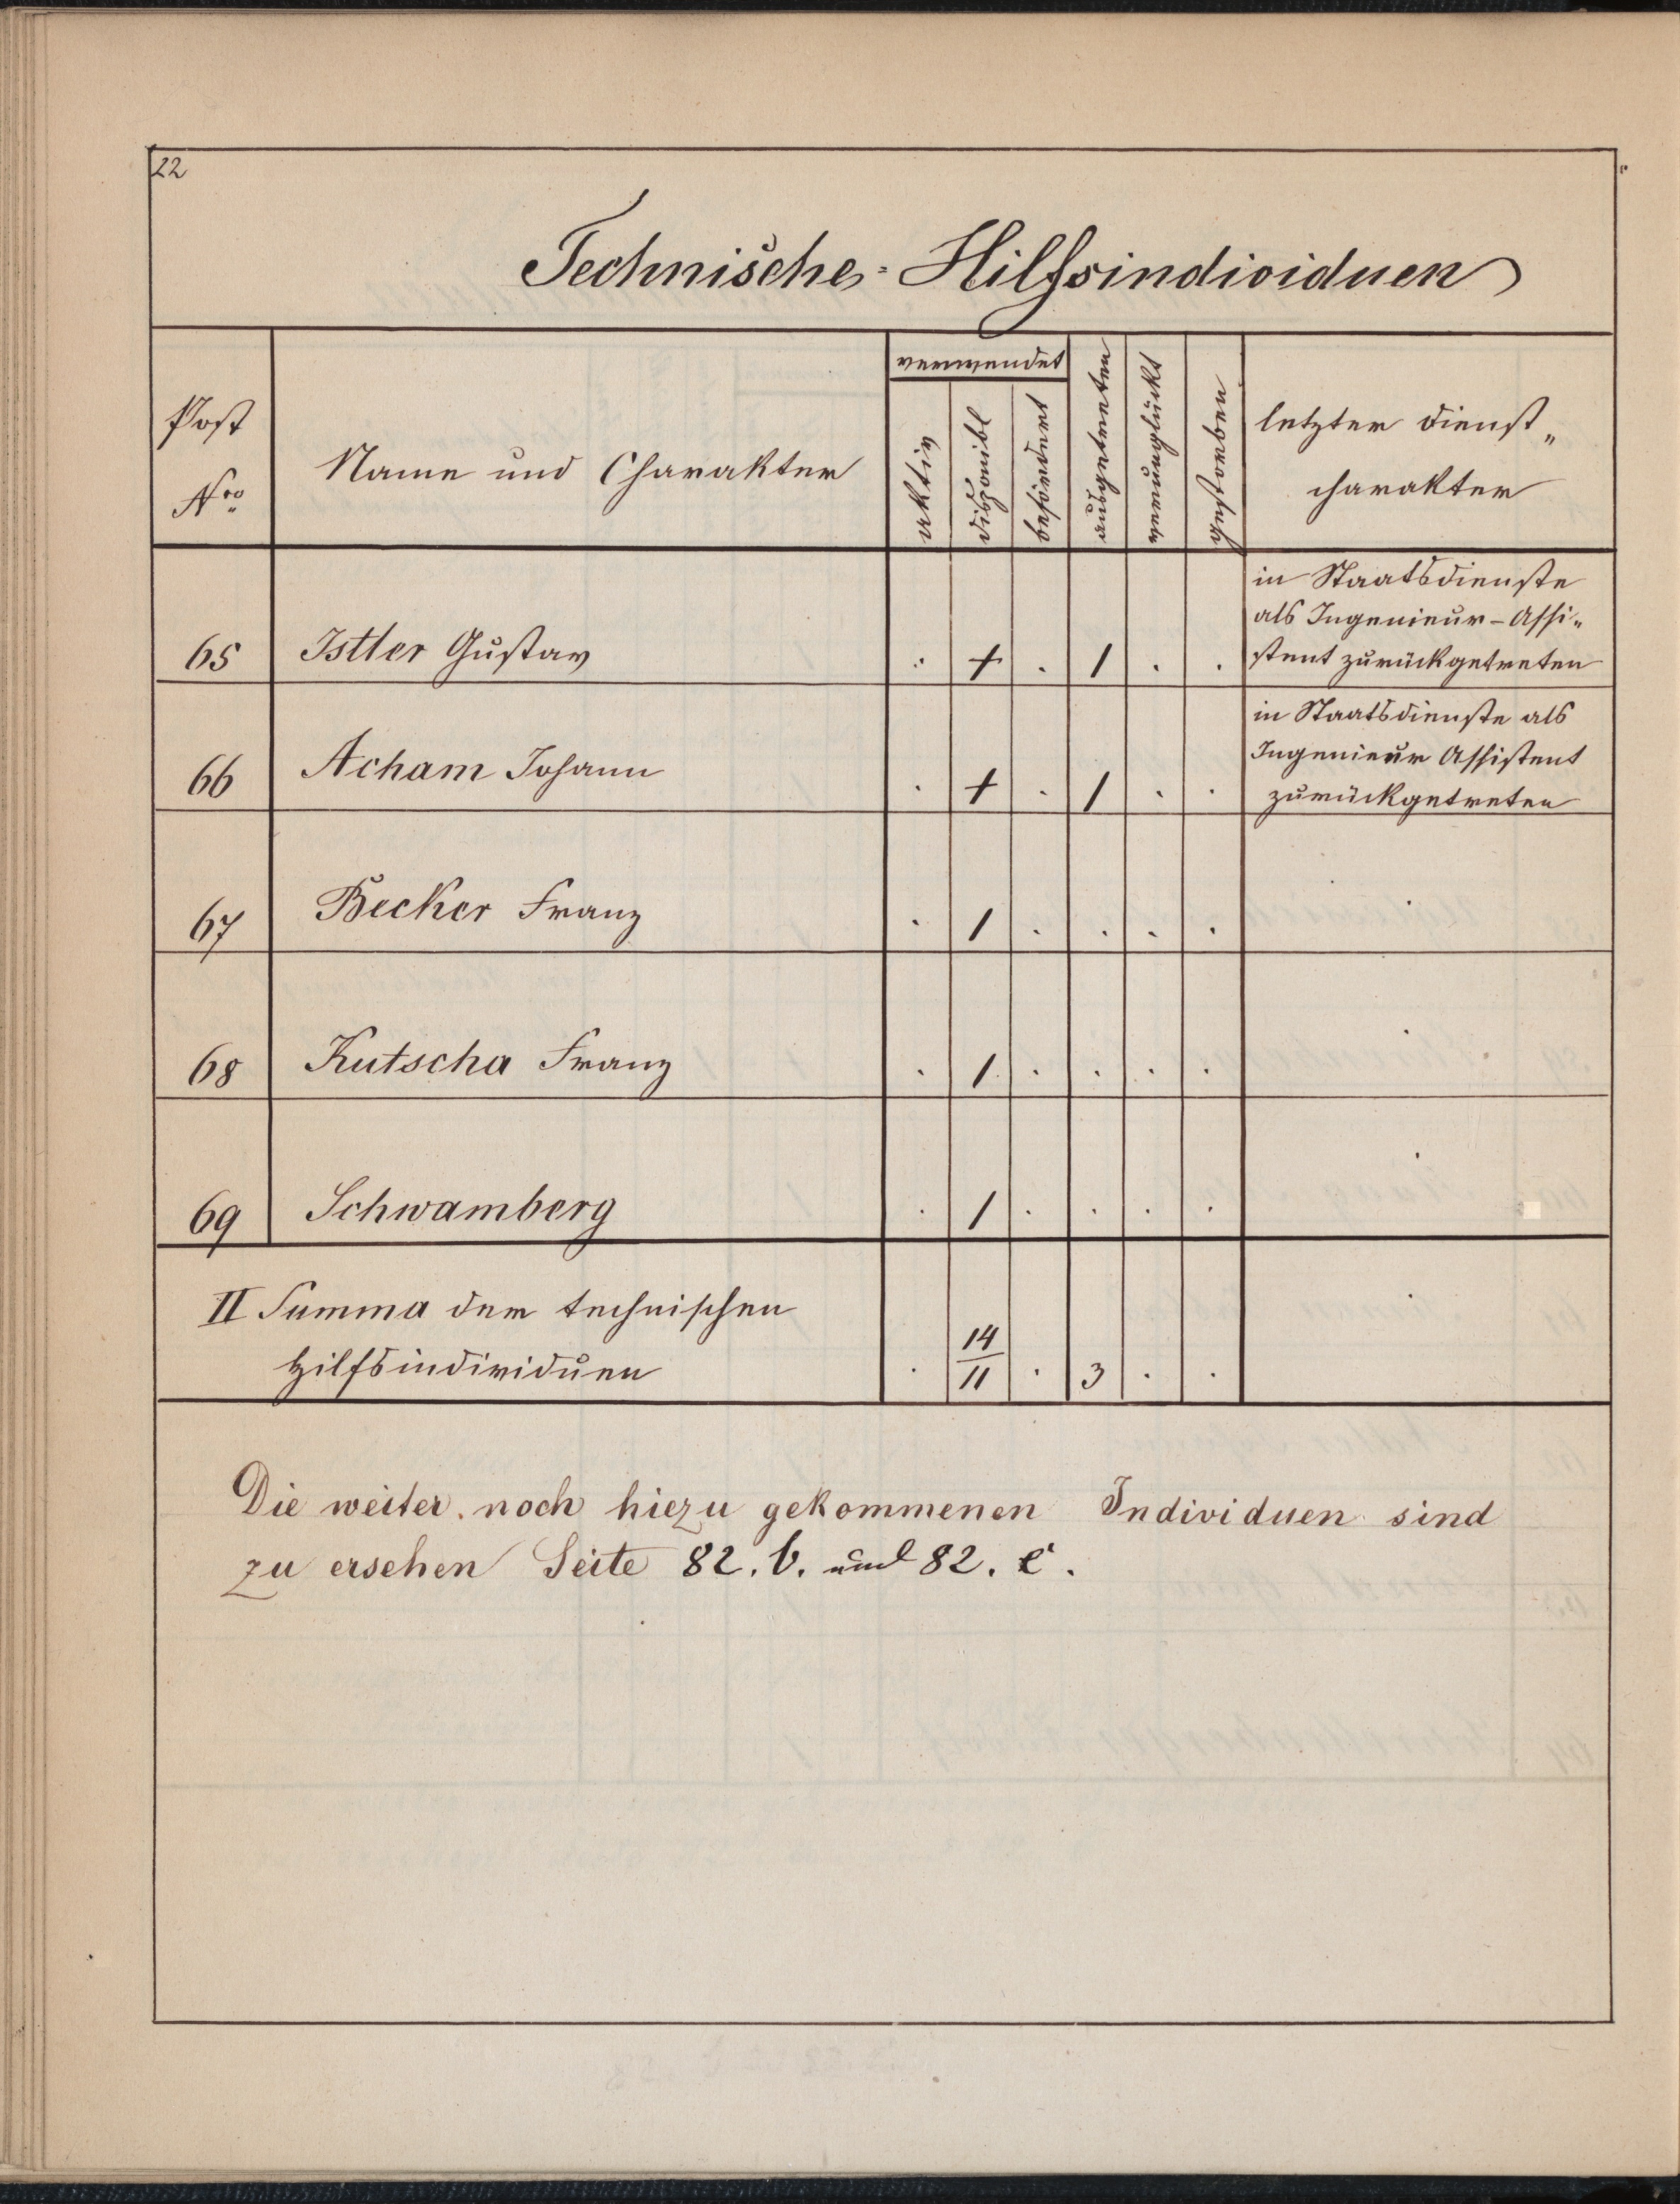 22
Technische-Hilfsindividuen
Post
Nro
Name und Charakter
verwendet
aktiv
disponibl
befördert
ausgetreten
verunglückt
gestorben
letzter Dienst„
charakter
65 Istler Gustav . + . 1 . .
in Staatsdienste
als Ingenieur-Assi„
stent zurückgetreten
66 Acham Johann . + . 1 . .
in Staatsdienste als
Ingenieur Assistent
zurückgetreten
67 Becker Franz . 1 . . . . .
68 Kutscha Franz . 1 . . . . .
69 Schwamberg . 1 . . . . .
II Summa der technischen
Hilfsindividuen . 14/11 . 3 . . .
Die weiter noch hiezu gekommenen Individuen sind
zu ersehen Seite 82. b. und 82. c.